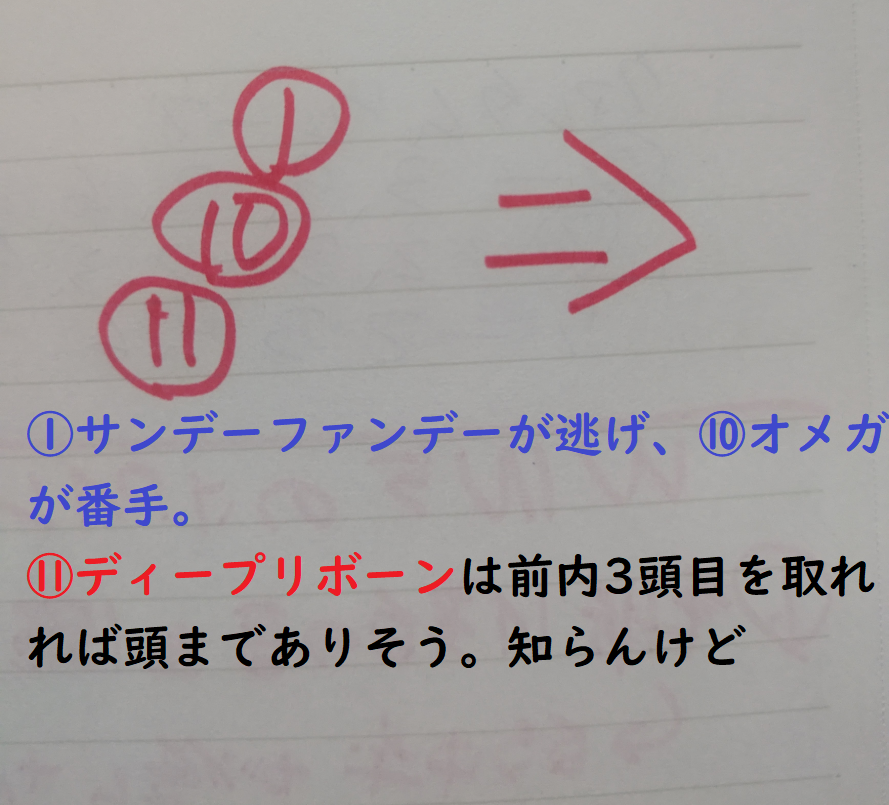 1
10
11
①サンデーファンデーが逃げ、⑩オメガ
が番手。
⑪ディープリボーンは前内3頭目を取れ
れば頭までありそう。知らんけど